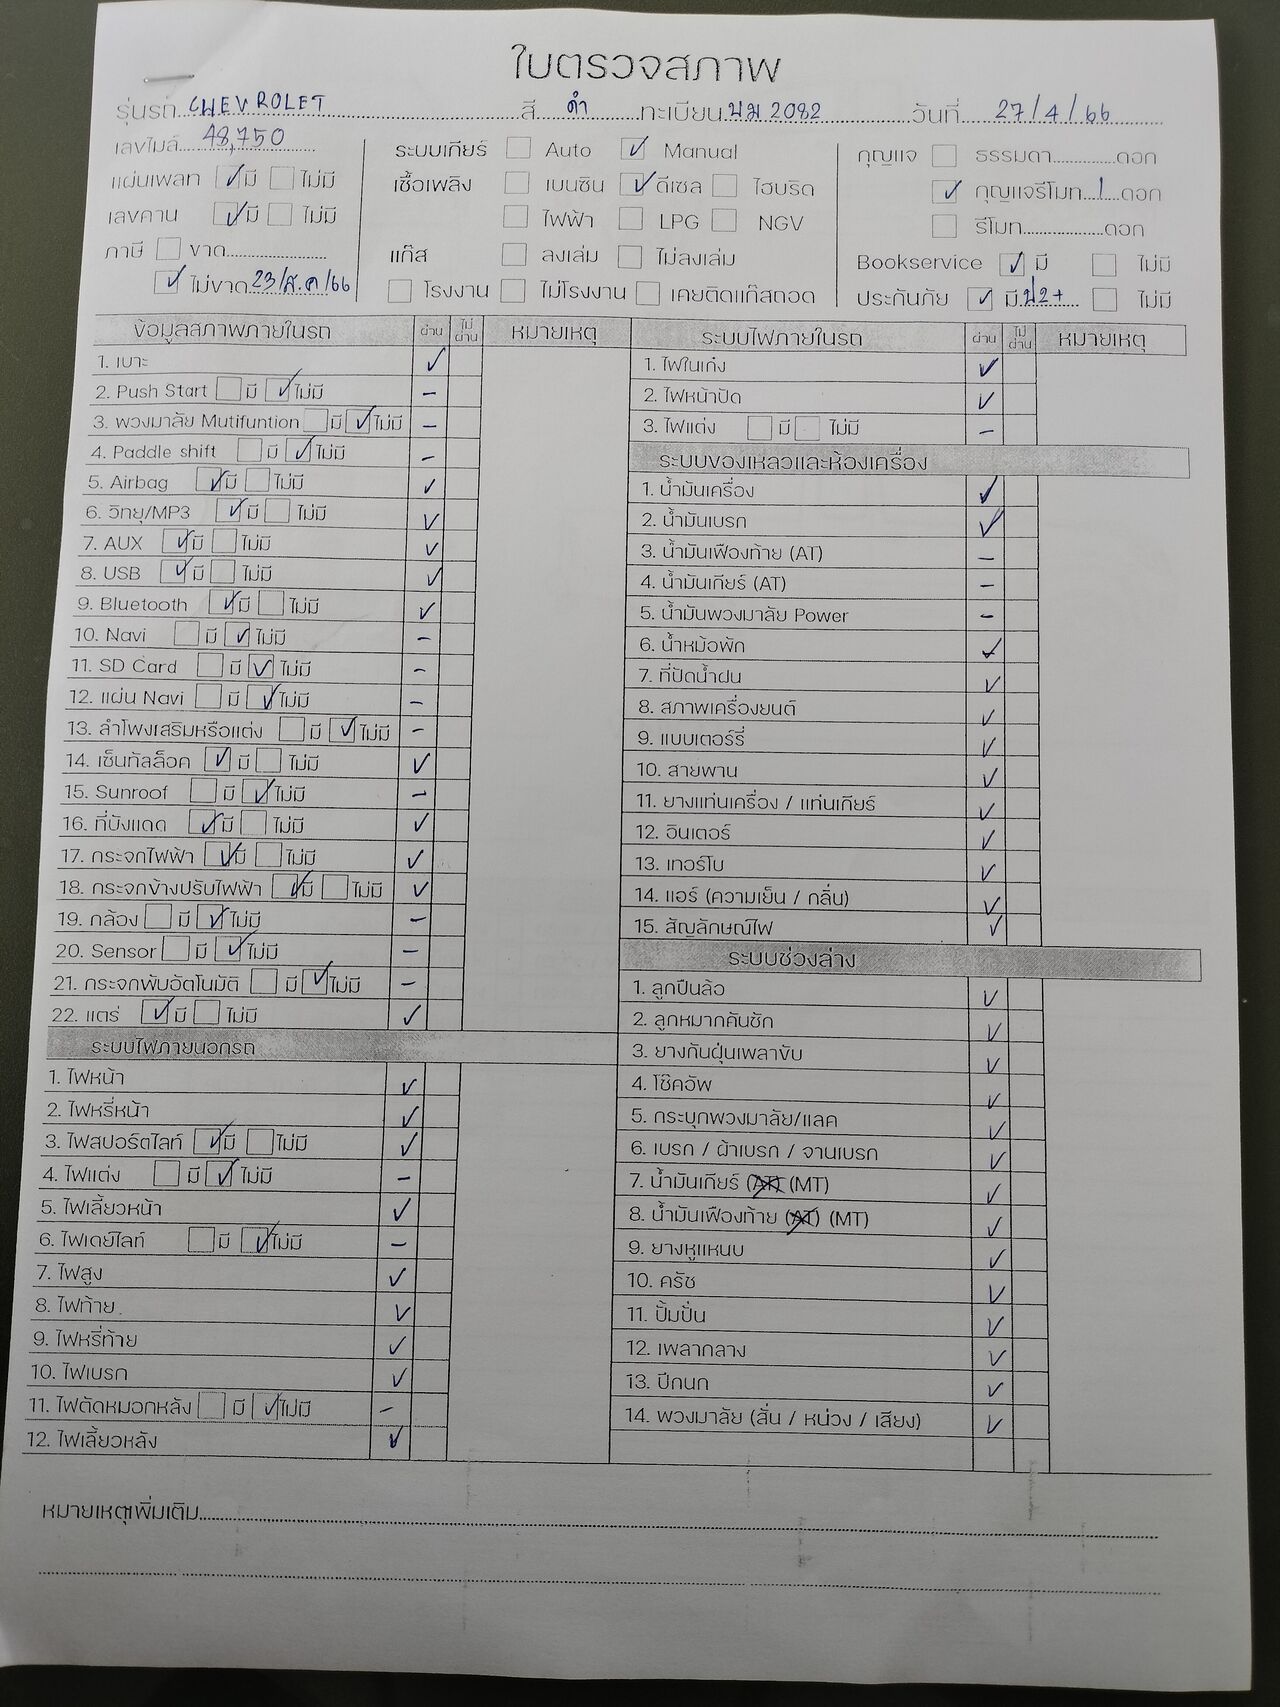 ใบตรวจสภาพ
รุ่นรถ CHEVROLET สี ดำ ทะเบียน บม 2082 วันที่ 27/4/66
เลขไมล์ 48,750
แผ่นเพลท ✓ มี ไม่มี
เลขคาน ✓ มี ไม่มี
ภาษี ขาด
✓ ไม่ขาด 23/ส.ค/66
ระบบเกียร์ Auto ✓ Manual
เชื้อเพลิง เบนซิน ✓ ดีเซล ไฮบริด
ไฟฟ้า LPG NGV
แก๊ส ลงเล่ม ไม่ลงเล่ม
โรงงาน ไม่โรงงาน เคยติดแก๊สถอด
กุญแจ ธรรมดา ดอก
✓ กุญแจรีโมท 1 ดอก
รีโมท ดอก
Bookservice ✓ มี ไม่มี
ประกันภัย ✓ มี ป2+ ไม่มี
ข้อมูลสภาพภายในรถ ผ่าน ไม่ผ่าน หมายเหตุ
1. เบาะ ✓
2. Push Start มี ✓ ไม่มี –
3. พวงมาลัย Mutifuntion มี ✓ ไม่มี –
4. Paddle shift มี ✓ ไม่มี –
5. Airbag ✓ มี ไม่มี ✓
6. วิทยุ/MP3 ✓ มี ไม่มี ✓
7. AUX ✓ มี ไม่มี ✓
8. USB ✓ มี ไม่มี ✓
9. Bluetooth ✓ มี ไม่มี ✓
10. Navi มี ✓ ไม่มี –
11. SD Card มี ✓ ไม่มี –
12. แผ่น Navi มี ✓ ไม่มี –
13. ลำโพงเสริมหรือแต่ง มี ✓ ไม่มี –
14. เซ็นทัลล็อค ✓ มี ไม่มี ✓
15. Sunroof มี ✓ ไม่มี –
16. ที่บังแดด ✓ มี ไม่มี ✓
17. กระจกไฟฟ้า ✓ มี ไม่มี ✓
18. กระจกข้างปรับไฟฟ้า ✓ มี ไม่มี ✓
19. กล้อง มี ✓ ไม่มี –
20. Sensor มี ✓ ไม่มี –
21. กระจกพับอัตโนมัติ มี ✓ ไม่มี –
22. แตร่ ✓ มี ไม่มี ✓
ระบบไฟภายนอกรถ
1. ไฟหน้า ✓
2. ไฟหรี่หน้า ✓
3. ไฟสปอร์ตไลท์ ✓ มี ไม่มี ✓
4. ไฟแต่ง มี ✓ ไม่มี –
5. ไฟเลี้ยวหน้า ✓
6. ไฟเดย์ไลท์ มี ✓ ไม่มี –
7. ไฟสูง ✓
8. ไฟท้าย ✓
9. ไฟหรี่ท้าย ✓
10. ไฟเบรก ✓
11. ไฟตัดหมอกหลัง มี ✓ ไม่มี –
12. ไฟเลี้ยวหลัง ✓
ระบบไฟภายในรถ ผ่าน ไม่ผ่าน หมายเหตุ
1. ไฟในเก๋ง ✓
2. ไฟหน้าปัด ✓
3. ไฟแต่ง มี ไม่มี –
ระบบของเหลวและห้องเครื่อง
1. น้ำมันเครื่อง ✓
2. น้ำมันเบรก ✓
3. น้ำมันเฟืองท้าย (AT) –
4. น้ำมันเกียร์ (AT) –
5. น้ำมันพวงมาลัย Power –
6. น้ำหม้อพัก ✓
7. ที่ปัดน้ำฝน ✓
8. สภาพเครื่องยนต์ ✓
9. แบบเตอร์รี่ ✓
10. สายพาน ✓
11. ยางแท่นเครื่อง / แท่นเกียร์ ✓
12. อินเตอร์ ✓
13. เทอร์โบ ✓
14. แอร์ (ความเย็น / กลิ่น) ✓
15. สัญลักษณ์ไฟ ✓
ระบบช่วงล่าง
1. ลูกปืนล้อ ✓
2. ลูกหมากคันชัก ✓
3. ยางกันฝุ่นเพลาขับ ✓
4. โช๊คอัพ ✓
5. กระบุกพวงมาลัย/แลค ✓
6. เบรก / ผ้าเบรก / จานเบรก ✓
7. น้ำมันเกียร์ (AT) (MT) ✓
8. น้ำมันเฟืองท้าย (AT) (MT) ✓
9. ยางหูแหนบ ✓
10. ครัช ✓
11. ปั้มปั่น ✓
12. เพลากลาง ✓
13. ปีกนก ✓
14. พวงมาลัย (สั่น / หน่วง / เสียง) ✓
หมายเหตุเพิ่มเติม